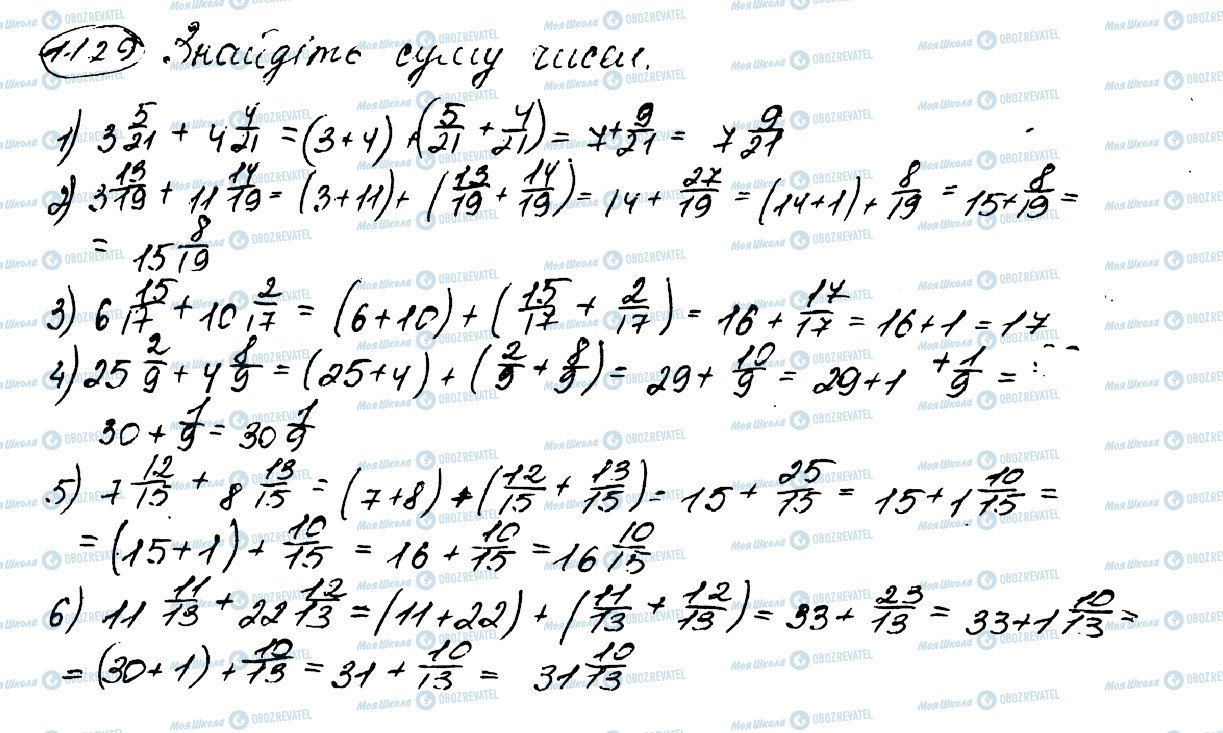 1129 Знайдіть суму чисел.
1) 3 5/21 + 4 4/21 = (3+4) + (5/21 + 4/21) = 7 + 9/21 = 7 9/21
2) 3 13/19 + 11 14/19 = (3+11) + (13/19 + 14/19) = 14 + 27/19 = (14+1) + 8/19 = 15 + 8/19 =
= 15 8/19
3) 6 15/17 + 10 2/17 = (6+10) + (15/17 + 2/17) = 16 + 17/17 = 16+1 = 17
4) 25 2/9 + 4 8/9 = (25+4) + (2/9 + 8/9) = 29 + 10/9 = 29+1 + 1/9 =
30 + 1/9 = 30 1/9
5) 7 12/15 + 8 13/15 = (7+8) + (12/15 + 13/15) = 15 + 25/15 = 15 + 1 10/15 =
= (15+1) + 10/15 = 16 + 10/15 = 16 10/15
6) 11 11/13 + 22 12/13 = (11+22) + (11/13 + 12/13) = 33 + 23/13 = 33 + 1 10/13 =
= (30+1) + 10/13 = 31 + 10/13 = 31 10/13
Моя Школа OBOZREVATEL